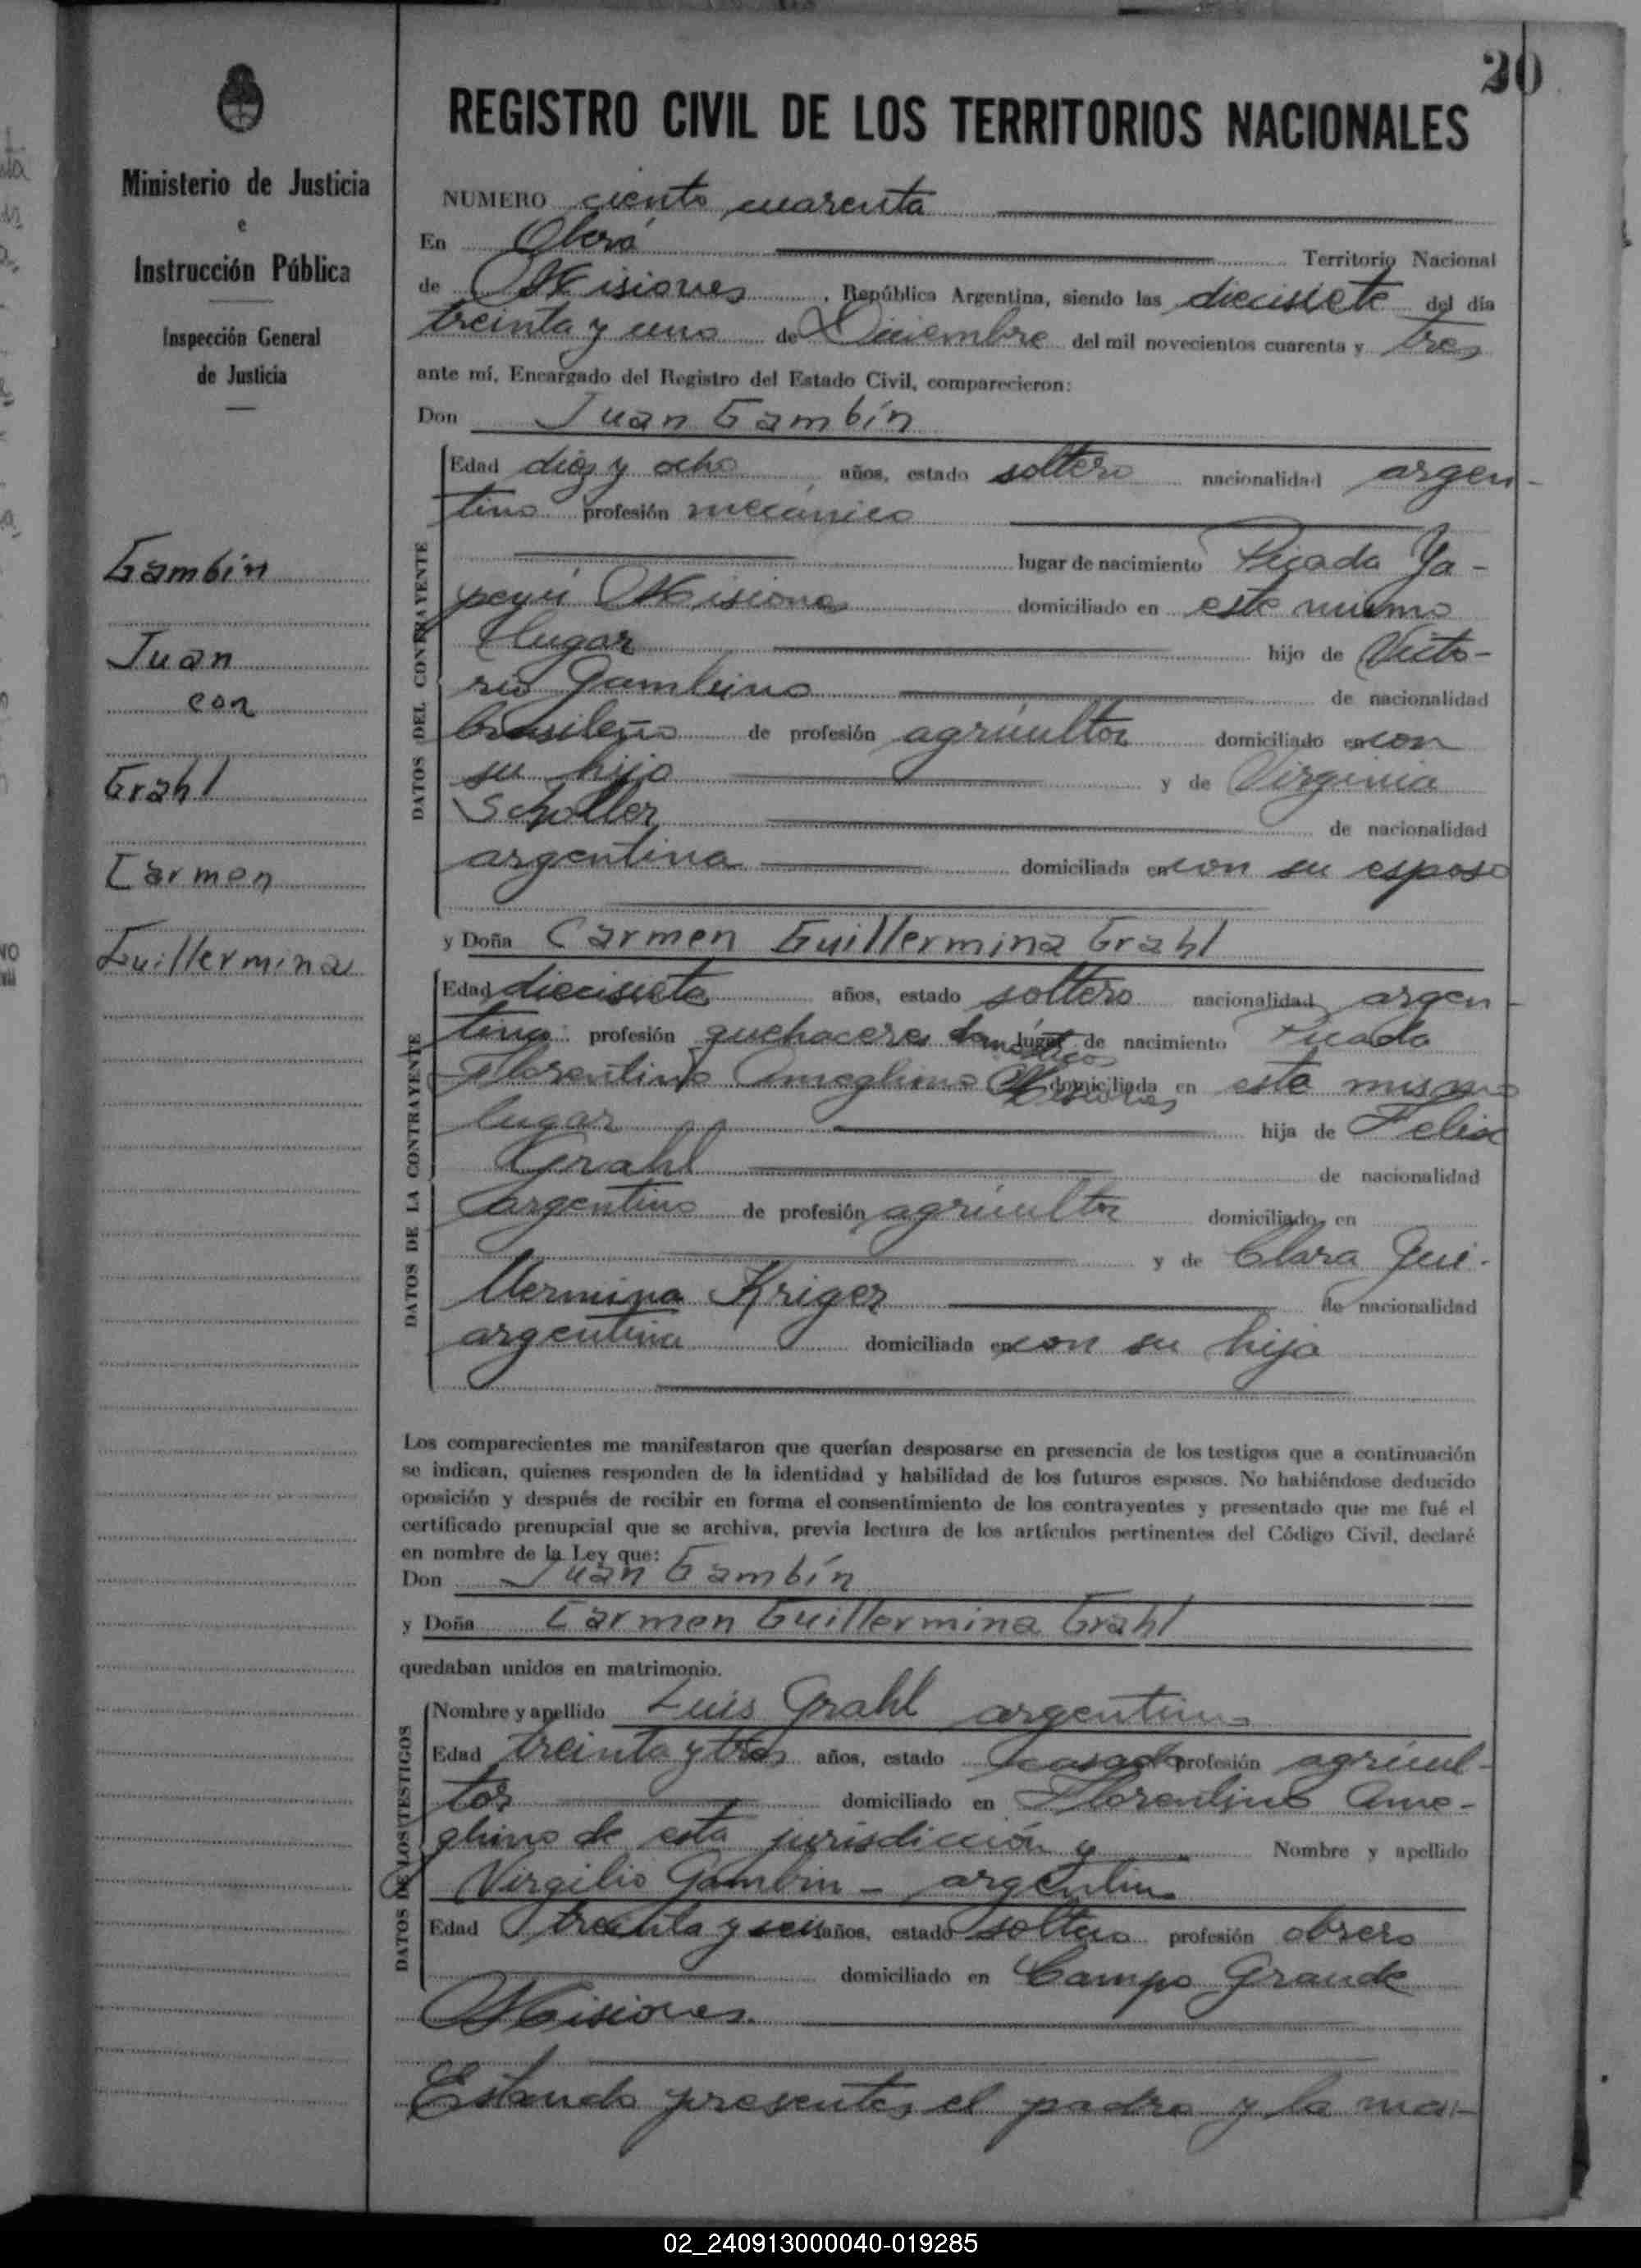 20
REGISTRO CIVIL DE LOS TERRITORIOS NACIONALES
Ministerio de Justicia
e
Instrucción Pública
Inspección General
de Justicia
Gambín
Juan
con
Grahl
Carmen
Guillermina
NUMERO ciento cuarenta
En Oberá Territorio Nacional
de Misiones, República Argentina, siendo las diecisiete del día
treinta y uno de Diciembre del mil novecientos cuarenta y tres
ante mí, Encargado del Registro del Estado Civil, comparecieron:
Don Juan Gambín
DATOS DEL CONTRAYENTE
Edad diez y ocho años, estado soltero nacionalidad argen-
tino profesión mecánico
lugar de nacimiento Picada Ya-
peyú Misiones domiciliado en este mismo
lugar hijo de Victo-
rio Gambino de nacionalidad
brasileño de profesión agricultor domiciliado en con
su hijo y de Virginia
Scholler de nacionalidad
argentina domiciliada en con su esposo
y Doña Carmen Guillermina Grahl
DATOS DE LA CONTRAYENTE
Edad diecisiete años, estado soltero nacionalidad argen-
tina profesión quehaceres domésticos lugar de nacimiento Picada
Florentino Ameghino Misiones domiciliada en este mismo
lugar hija de Felix
Grahl de nacionalidad
argentino de profesión agricultor domiciliado en
y de Clara Gui-
llermina Kriger de nacionalidad
argentina domiciliada en con su hija
Los comparecientes me manifestaron que querían desposarse en presencia de los testigos que a continuación
se indican, quienes responden de la identidad y habilidad de los futuros esposos. No habiéndose deducido
oposición y después de recibir en forma el consentimiento de los contrayentes y presentado que me fué el
certificado prenupcial que se archiva, previa lectura de los artículos pertinentes del Código Civil, declaré
en nombre de la Ley que:
Don Juan Gambín
y Doña Carmen Guillermina Grahl
quedaban unidos en matrimonio.
DATOS DE LOS TESTIGOS
Nombre y apellido Luis Grahl argentino
Edad treinta y tres años, estado casado profesión agricul-
tor domiciliado en Florentino Ame-
ghino de esta jurisdicción y Nombre y apellido
Virgilio Gambin - argentino
Edad treinta y seis años, estado soltero profesión obrero
domiciliado en Campo Grande
Misiones.
Estando presentes el padre y la ma-
02_240913000040-019285